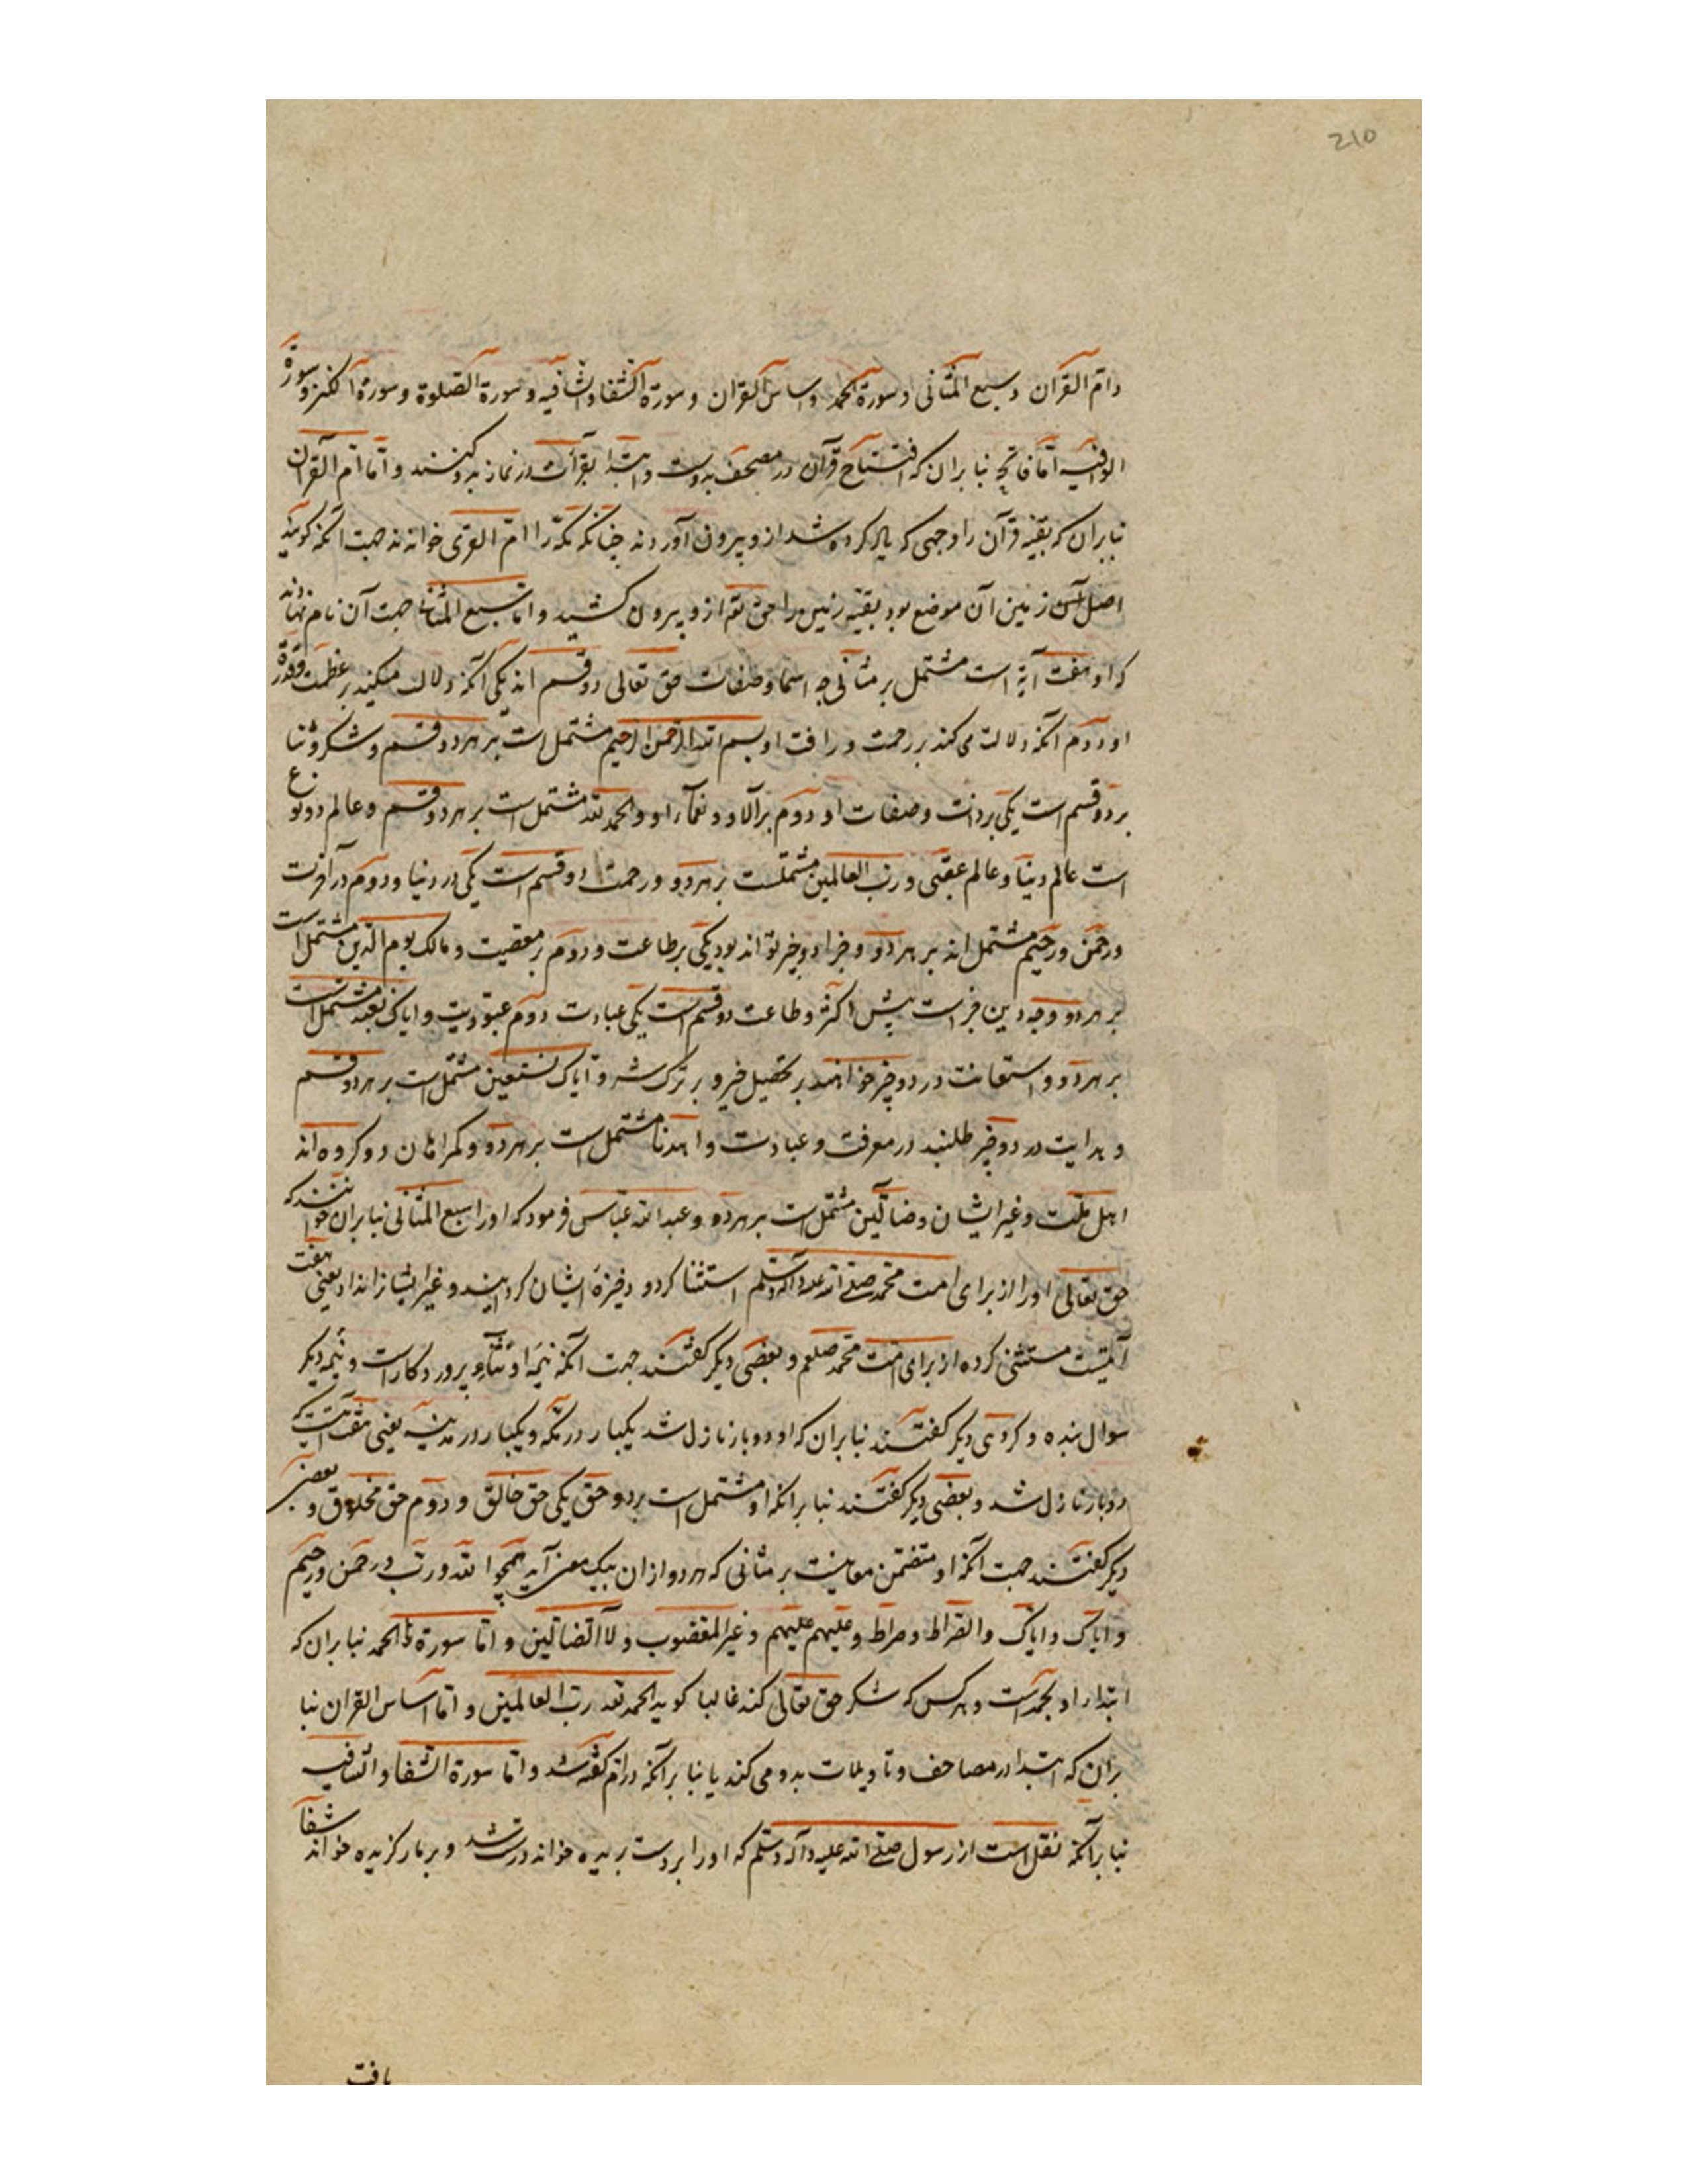 210
وام القرآن و سبع المثانی و سورة الحمد و اساس القرآن و سورة الشفا و الشافیه و سورة الصلوة و سورة الکنز و سورة
الوافیه اما فاتحه بنا بران که افتتاح قرآن در مصحف بدوست و ابتدا بقرأت در نماز بدو کنند و اما ام القرآن
بنا بران که بقیه قرآن را وجهی که یاد کرده شد از و بیرون آوردند چنانکه مکه را ام القری خوانند جهت آنکه کویند
اصل زمین آن موضع بود بقیه زمین را حق تع از و بیرون کشید و اما سبع المثانی جهت آن نام نهادند
که او هفت آیة است مشتمل بر مثانی چه اسما و صفات حق تعالی دو قسم اند یکی آنکه دلالت میکند بر عظمت و قدرة
او و دوم آنکه دلالت می کند بر رحمت و رافت او بسم الله الرحمن الرحیم مشتمل است بر هر دو قسم و شکر و ثنا
بر دو قسم است یکی بر ذات و صفات او دوم بر آلا و نعماء او و الحمد لله مشتمل است بر هر دو قسم و عالم دو نوع
است عالم دنیا و عالم عقبی و رب العالمین مشتملست بر هر دو و رحمت دو قسم است یکی در دنیا و دوم در آخرت
و رحمن و رحیم مشتمل اند بر هر دو و جزا دو چیز تواند بود یکی بر طاعت و دوم بر معصیت و مالک یوم الدین مشتمل است
بر هر دو و چه دین جزاست پیش اکثر و طاعت دو قسم است یکی عبادت دوم عبودیت و ایاک نعبد مشتمل است
بر هر دو و استعانت در دو چیز خواهند بر تحصیل خیر و بر ترک شر و ایاک نستعین مشتمل است بر هر دو قسم
و هدایت در دو چیز طلبند در معرفت و عبادت و اهدنا مشتمل است بر هر دو و کمراهان دو کروه اند
اهل ملت و غیر ایشان و ضالین مشتمل است بر هر دو و عبد الله عباس فرمود که او را سبع المثانی بنا بران خوانند که
حق تعالی او را از برای امت محمد صلی الله علیه و آله و سلم استثنا کرد و ذخیرهٔ ایشان کردانید و غیر ایشانرا نداد یعنی هفت
آیتست مستثنی کرده از برای امت محمد صلعم و بعضی دیکر کفتند جهت آنکه نیمهٔ او ثناء پروردکار است و نیمه دیکر
سوال بنده و کروهی دیکر کفتند بنا بران که او دو بار نازل شد یکبار در مکه و یکبار در مدینه یعنی هفت آیتست که
دو بار نازل شد و بعضی دیکر کفتند بنا برانکه او مشتمل است بر دو حق یکی حق خالق و دوم حق مخلوق و بعضی
دیکر کفتند جهت آنکه او متضمن معانیست بر مثانی که هر دو ازان بیک معنی آید همچو الله و رب و رحمن و رحیم
و ایاک و ایاک و الصراط و صراط و علیهم علیهم و غیر المغضوب و لا الضالین و اما سورة الحمد بنا بران که
ابتداء او بحمد است و هر کس که شکر حق تعالی کند غالبا کوید الحمد لله رب العالمین و اما اساس القران بنا
بران که ابتدا در مصاحف و تاویلات بدو می کند یا بنا برآنکه در ام کفته شد و اما سورة الشفا و الشافیه
بنا برآنکه نقل است از رسول صلی الله علیه و آله و سلم که او را بر دست بریده خواند درست شد و بر مار کزیده خواند شفا
یافت